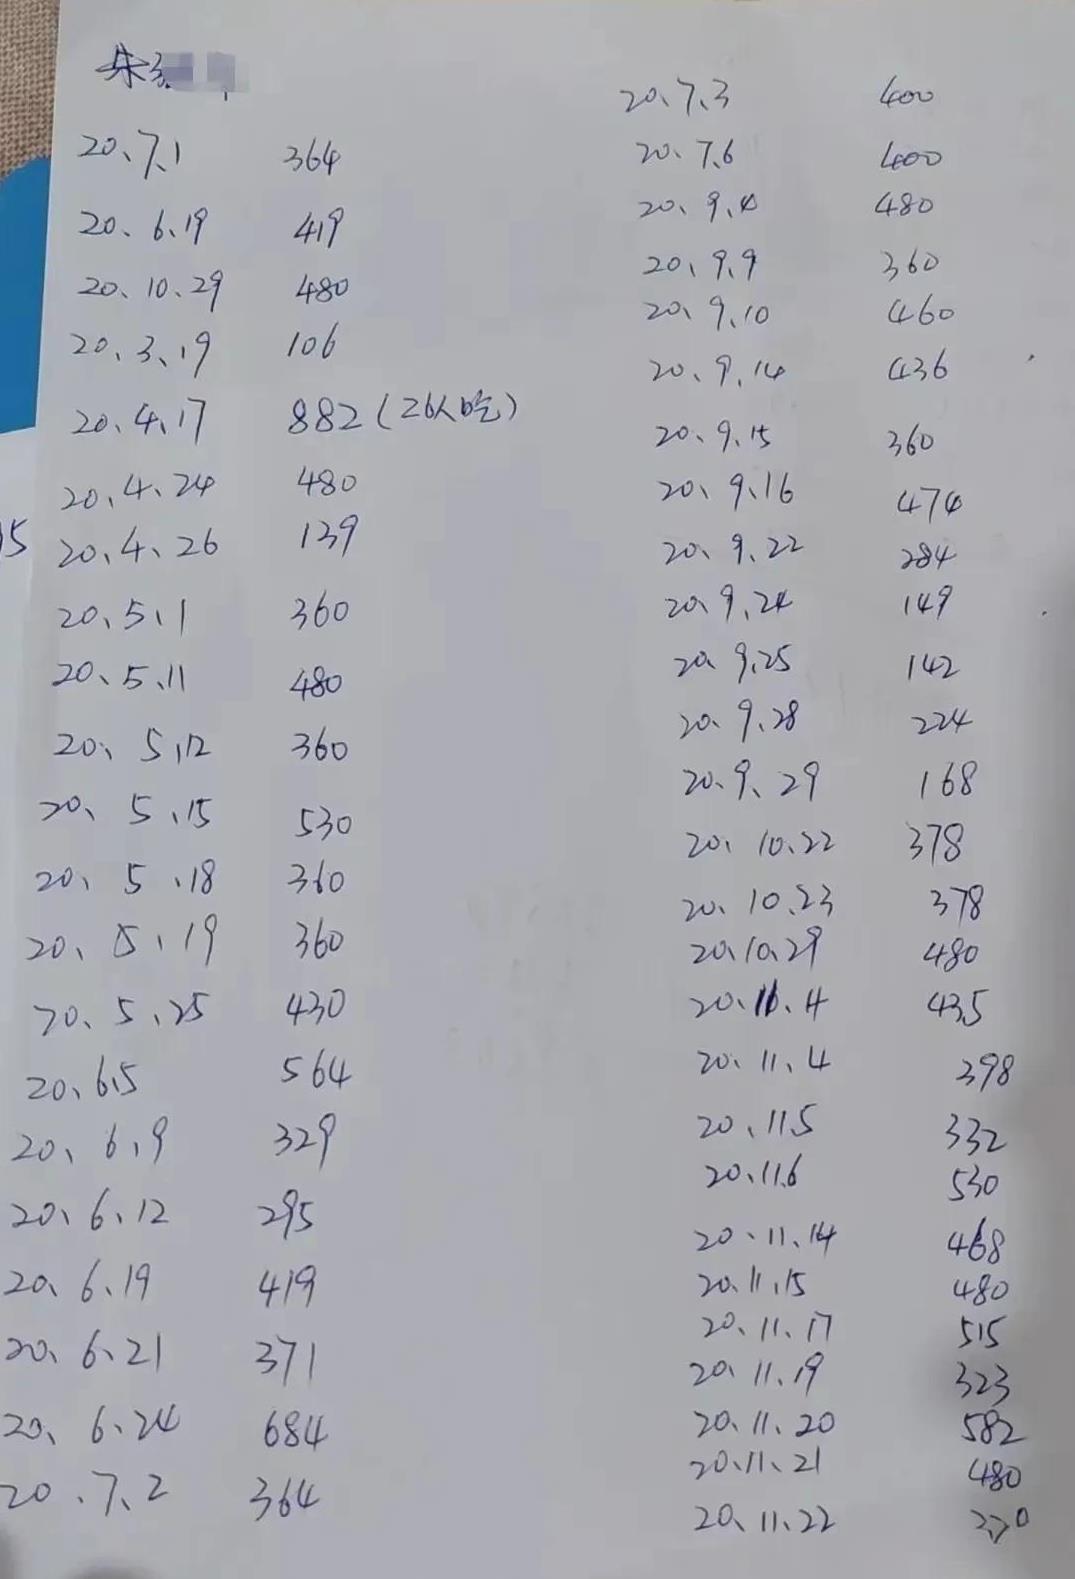 朱
20、7、1 364
20、6、19 419
20、10、29 480
20、3、19 106
20、4、17 882（26人吃）
20、4、24 480
20、4、26 139
20、5、1 360
20、5、11 480
20、5、12 360
20、5、15 530
20、5、18 360
20、5、19 360
20、5、25 430
20、6、5 564
20、6、9 329
20、6、12 295
20、6、19 419
20、6、21 371
20、6、24 684
20、7、2 364
20、7、3 400
20、7、6 400
20、9、4 480
20、9、9 360
20、9、10 460
20、9、14 436
20、9、15 360
20、9、16 474
20、9、22 284
20、9、24 149
20、9、25 142
20、9、28 224
20、9、29 168
20、10、22 378
20、10、23 378
20、10、29 480
20、11、4 435
20、11、4 398
20、11、5 332
20、11、6 530
20、11、14 468
20、11、15 480
20、11、17 515
20、11、19 323
20、11、20 582
20、11、21 480
20、11、22